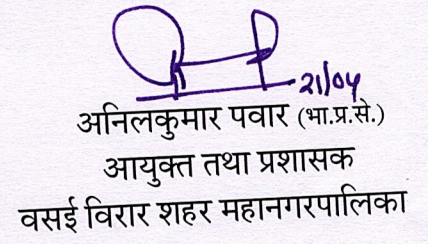 21/04
अनिलकुमार पवार (भा.प्र.से.)
आयुक्त तथा प्रशासक
वसई विरार शहर महानगरपालिका